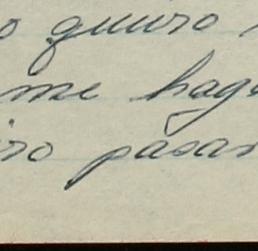 o quiero
me hag
ro pasar